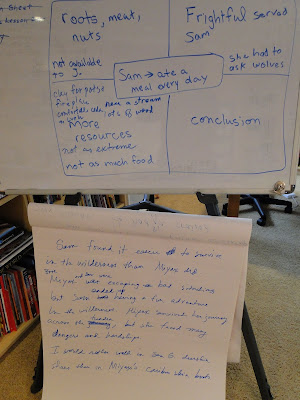 n Sheet
roots, meat,
nuts
not available
to J.
Frightful served
Sam
she had to
ask wolves
Sam → ate a
meal every day
clay for pots
fireplace
comfortable
near a stream
lots of wood
More
resources
not as extreme
not as much food
conclusion
Sam found it easier to survive
in the wilderness than Miyax did
Miyax was escaping a bad situation
ended up
but Sam having a fun adventure
in the wilderness. Miyax survived her journey
across the tundra, but she faced many
dangers and hardships.
I would rather walk in Sam G's
shoes than in Miyax's caribou skin boots